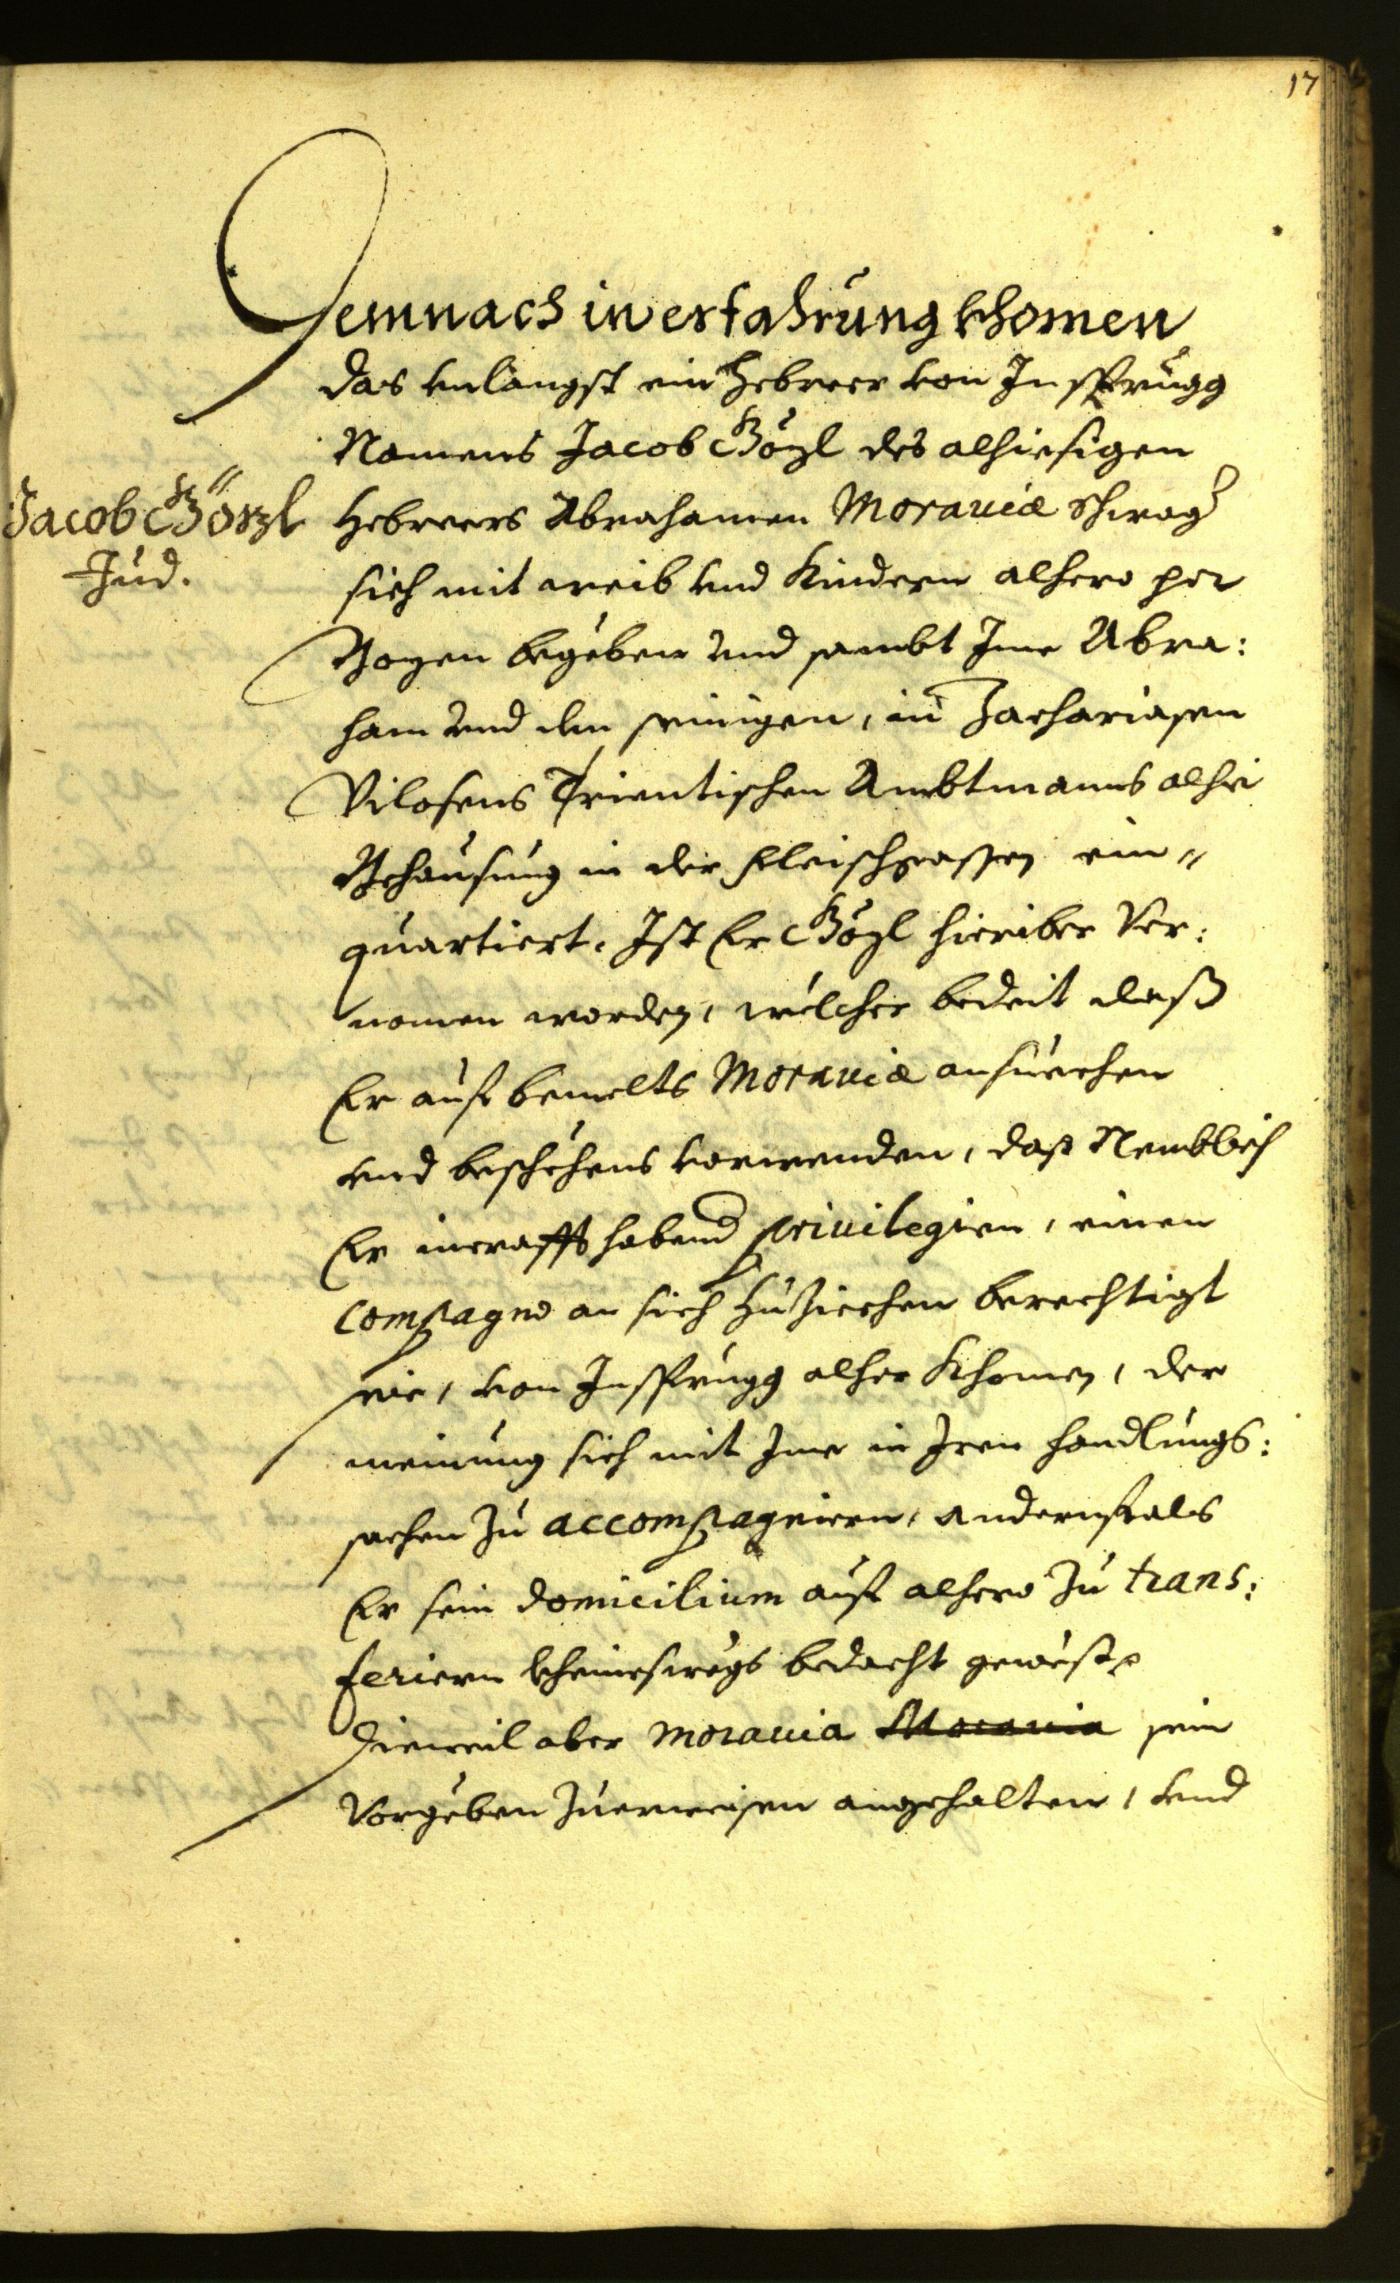 17
Demnach in erfahrung khomen
das unlangst ein Hebreer von Insprugg
Namens Jacob Gözl des alhiesigen
Jacob Görzl
Jud.
Hebreers Abrahamen Moraviae Schwag
sich mit weib und Kindern alhero per
Bozen begeben und sambt Ime Abra:
ham und den seinigen, in Zachariasen
Vilosens Trientischen Ambtmanns alhie
Behausung in der Fleischgassen ein„
quartiert. Ist Er Gözl hieriber Ver:
nomen worden, welcher bedeit dass
Er auf bemelts Moraviae ansuechen
und beschehens vorwenden, dass Nemblich
Er habend privilegien, einen
Compagno an sich zu ziechen berechtigt
seie, von Insprugg alher khomen, der
meinung sich mit Ime in Iren handlungs:
sachen zu accompagniern, andernfals
Er sein domicilium auf alhero zu trans:
feriern kheineswegs bedacht gewest
Dieweil aber Moravia Moravia sein
Vorgeben zuerweisen angehalten, und